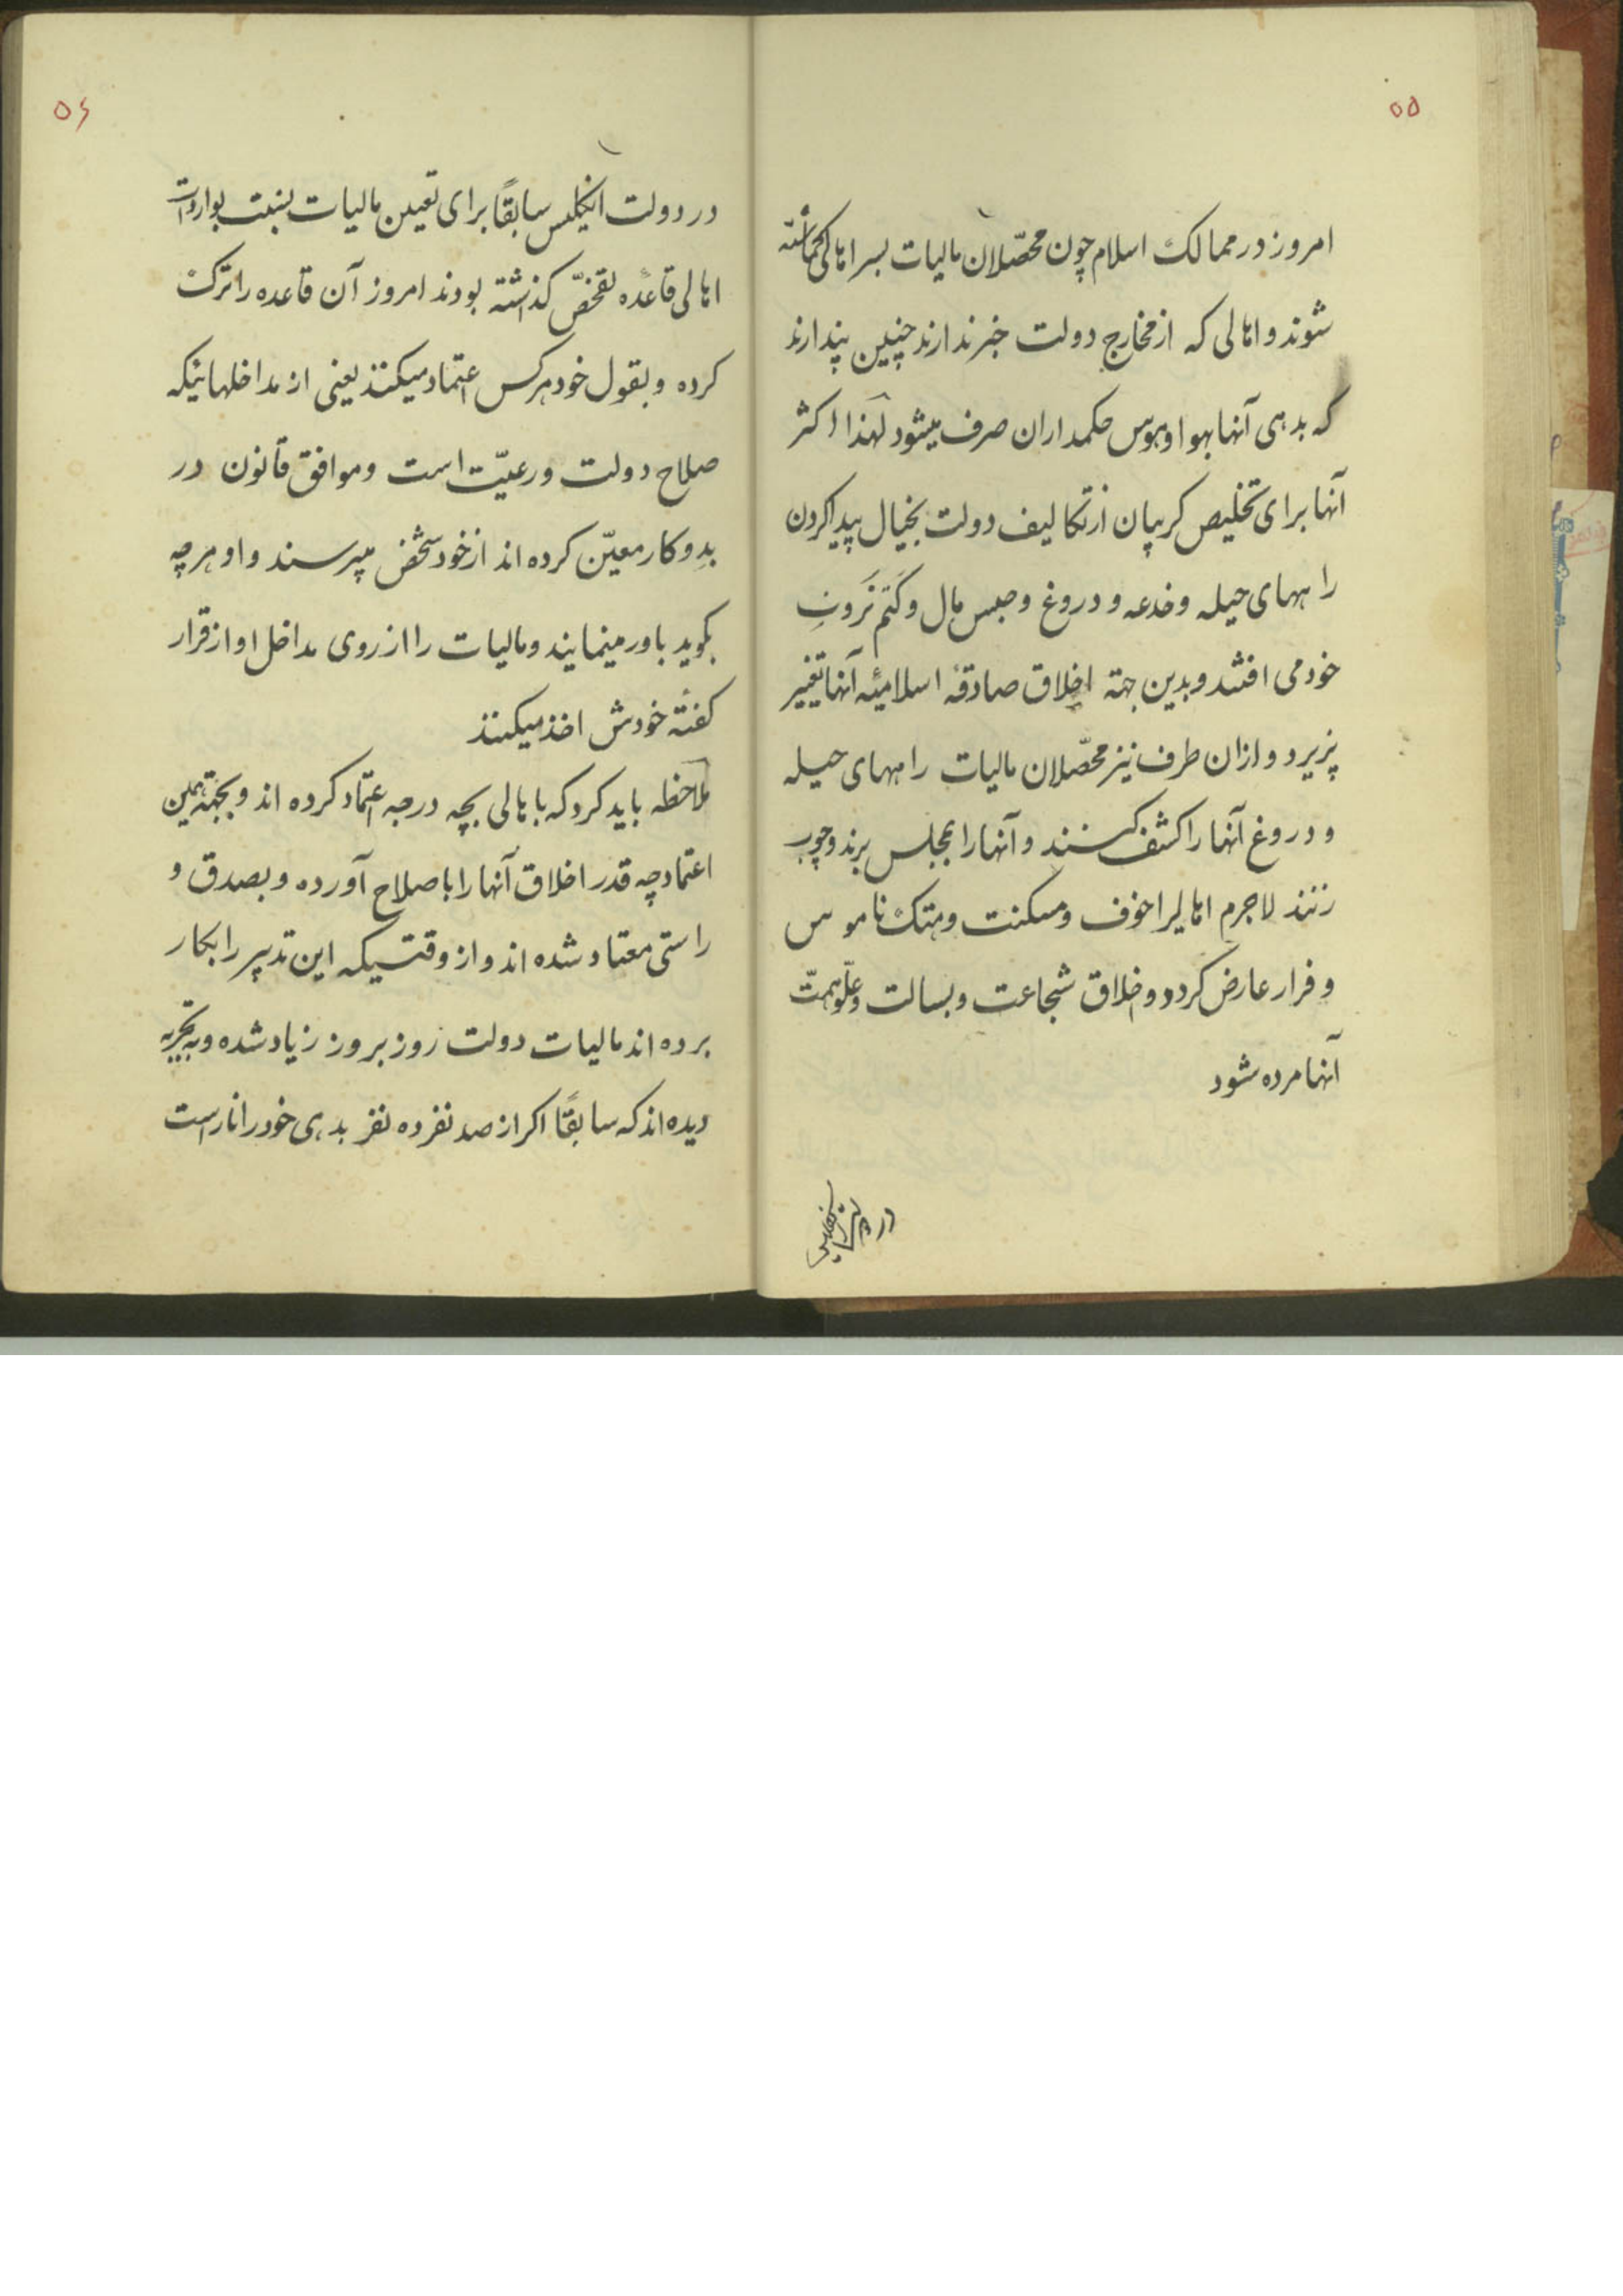 ۵۵
امروز در ممالک اسلام چون محصّلان مالیات بسر اهالی گماشته
شوند و اهالی که از مخارج دولت خبر ندارند چنین پندارند
که بدهی آنها بهوا و هوس حکمداران صرف میشود لهٰذا اکثر
آنها برای تخلیص کریبان از تکالیف دولت بخیال پیدا کردن
راههای حیله و خدعه و دروغ و حبس مال و کتم ثروتِ
خود می افتند و بدین جهته اخلاق صادقهٔ اسلامیّه آنها تغییر
پزیرد و ازان طرف نیز محصّلان مالیات راههای حیله
و دروغ آنها را کشف کنند و آنها را بمجلس برند و چوب
زنند لاجرم اهالیرا خوف و مسکنت و هتک ناموس
و فرار عارض کردد و اخلاق شجاعت و بسالت و علّو همّت
آنها مرده شود
در دولت انکلیس
۵۶
در دولت انکلیس سابقاً برای تعیین مالیات بنسبت بواردات
اهالی قاعدهٔ تفحّص کذاشته بودند امروز آن قاعده را ترک
کرده و بقول خود هرکس اعتماد میکنند یعنی از مداخلهائیکه
صلاح دولت و رعیّت است و موافق قانون در
بدو کار معیّن کرده اند از خود شخص میپرسند و او هرچه
بکوید باور مینمایند و مالیات را از روی مداخل او از قرار
کفتهٔ خودش اخذ میکنند
ملاحظه باید کرد که باهالی بچه درجه اعتماد کرده اند و بجهته همین
اعتماد چه قدر اخلاق آنها را باصلاح آورده و بصدق و
راستی معتاد شده اند و از وقتیکه این تدبیر را بکار
برده اند مالیات دولت روز بروز زیاد شده و بتجربه
دیده اند که سابقاً اکر از صد نفر ده نفر بدهی خود را ناراست